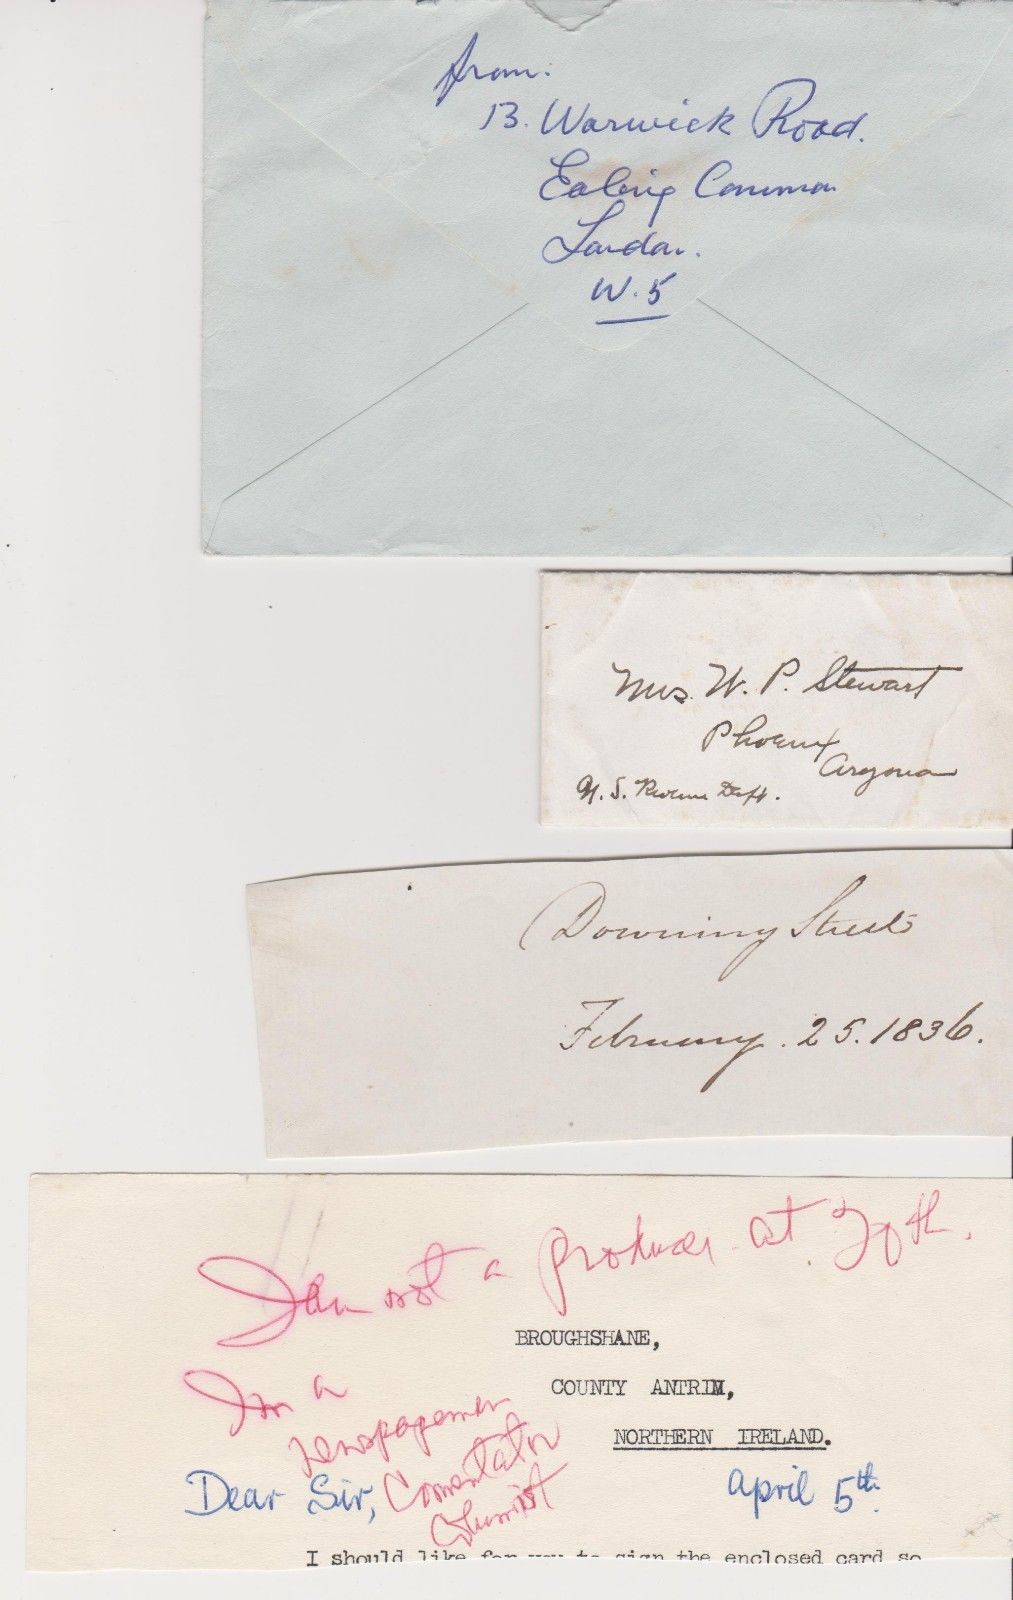 from:
13. Warwick Road.
Ealing Common
London.
W.5
Mrs. W. P. Stewart
Phoenix
Arizona
U. S. Revenue Dept.
Downing Street
February. 25. 1836.
I am not a producer at 20th.
BROUGHSHANE,
I'm a
COUNTY ANTRIM,
newspaperman
NORTHERN IRELAND.
Comentator
Dear Sir,
April 5th.
Columnist
I should like for you to sign the enclosed card so